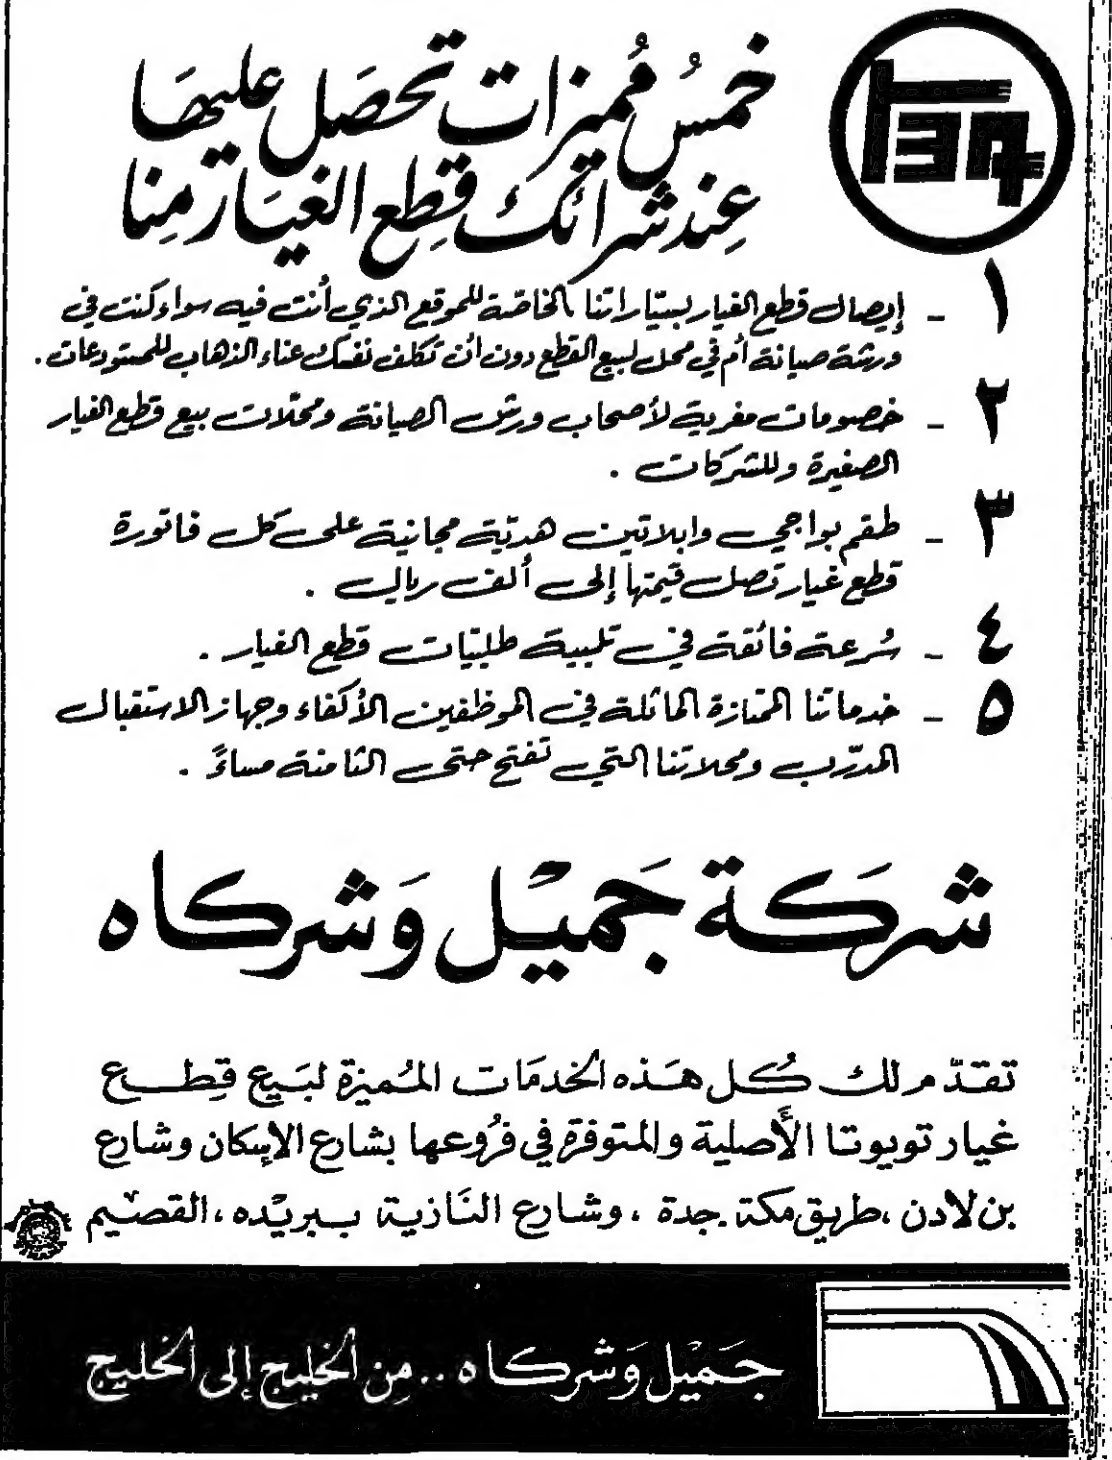 خمسُ مُميزات تحصَل عليهَا
عِند شرائك قِطع الغيَار مِنا
١ - إيصال قطع الغيار بسيّاراتنا الخاصّة للموقع الذي أنت فيه سواء كنت في
ورشة صيانة أم في محل لبيع القطع دون ان تكلف نفسك عناء الذهاب للمستودعات .
٢ - خصومات مغرية لأصحاب ورش الصيانة ومحلات بيع قطع الغيار
الصغيرة وللشركات .
٣ - طقم بواجي وابلاتين هديّة مجانية على كل فاتورة
قطع غيار تصل قيمتها إلى ألف ريال .
٤ - سُرعة فائقة في تلبية طلبيّات قطع الغيار .
٥ - خدماتنا الممتازة الماثلة في الموظفين الأكفاء وجهاز الاستقبال
المدرّب ومحلاتنا التي تفتح حتى الثامنة مساءً .
شرَكة جَميْل وَشركاه
تقدّم لك كُل هَذه الخدمَات المُميزة لبَيع قِطع
غيار تويوتا الأَصلية والمتوفرة في فرُوعها بشارع الإسكان وشارع
بن لادن ، طريق مكة . جدة ، وشارع النَازية ببريْده ، القصيْم
جَميْل وَشركاه .. مِن الخليج إلى الخليج